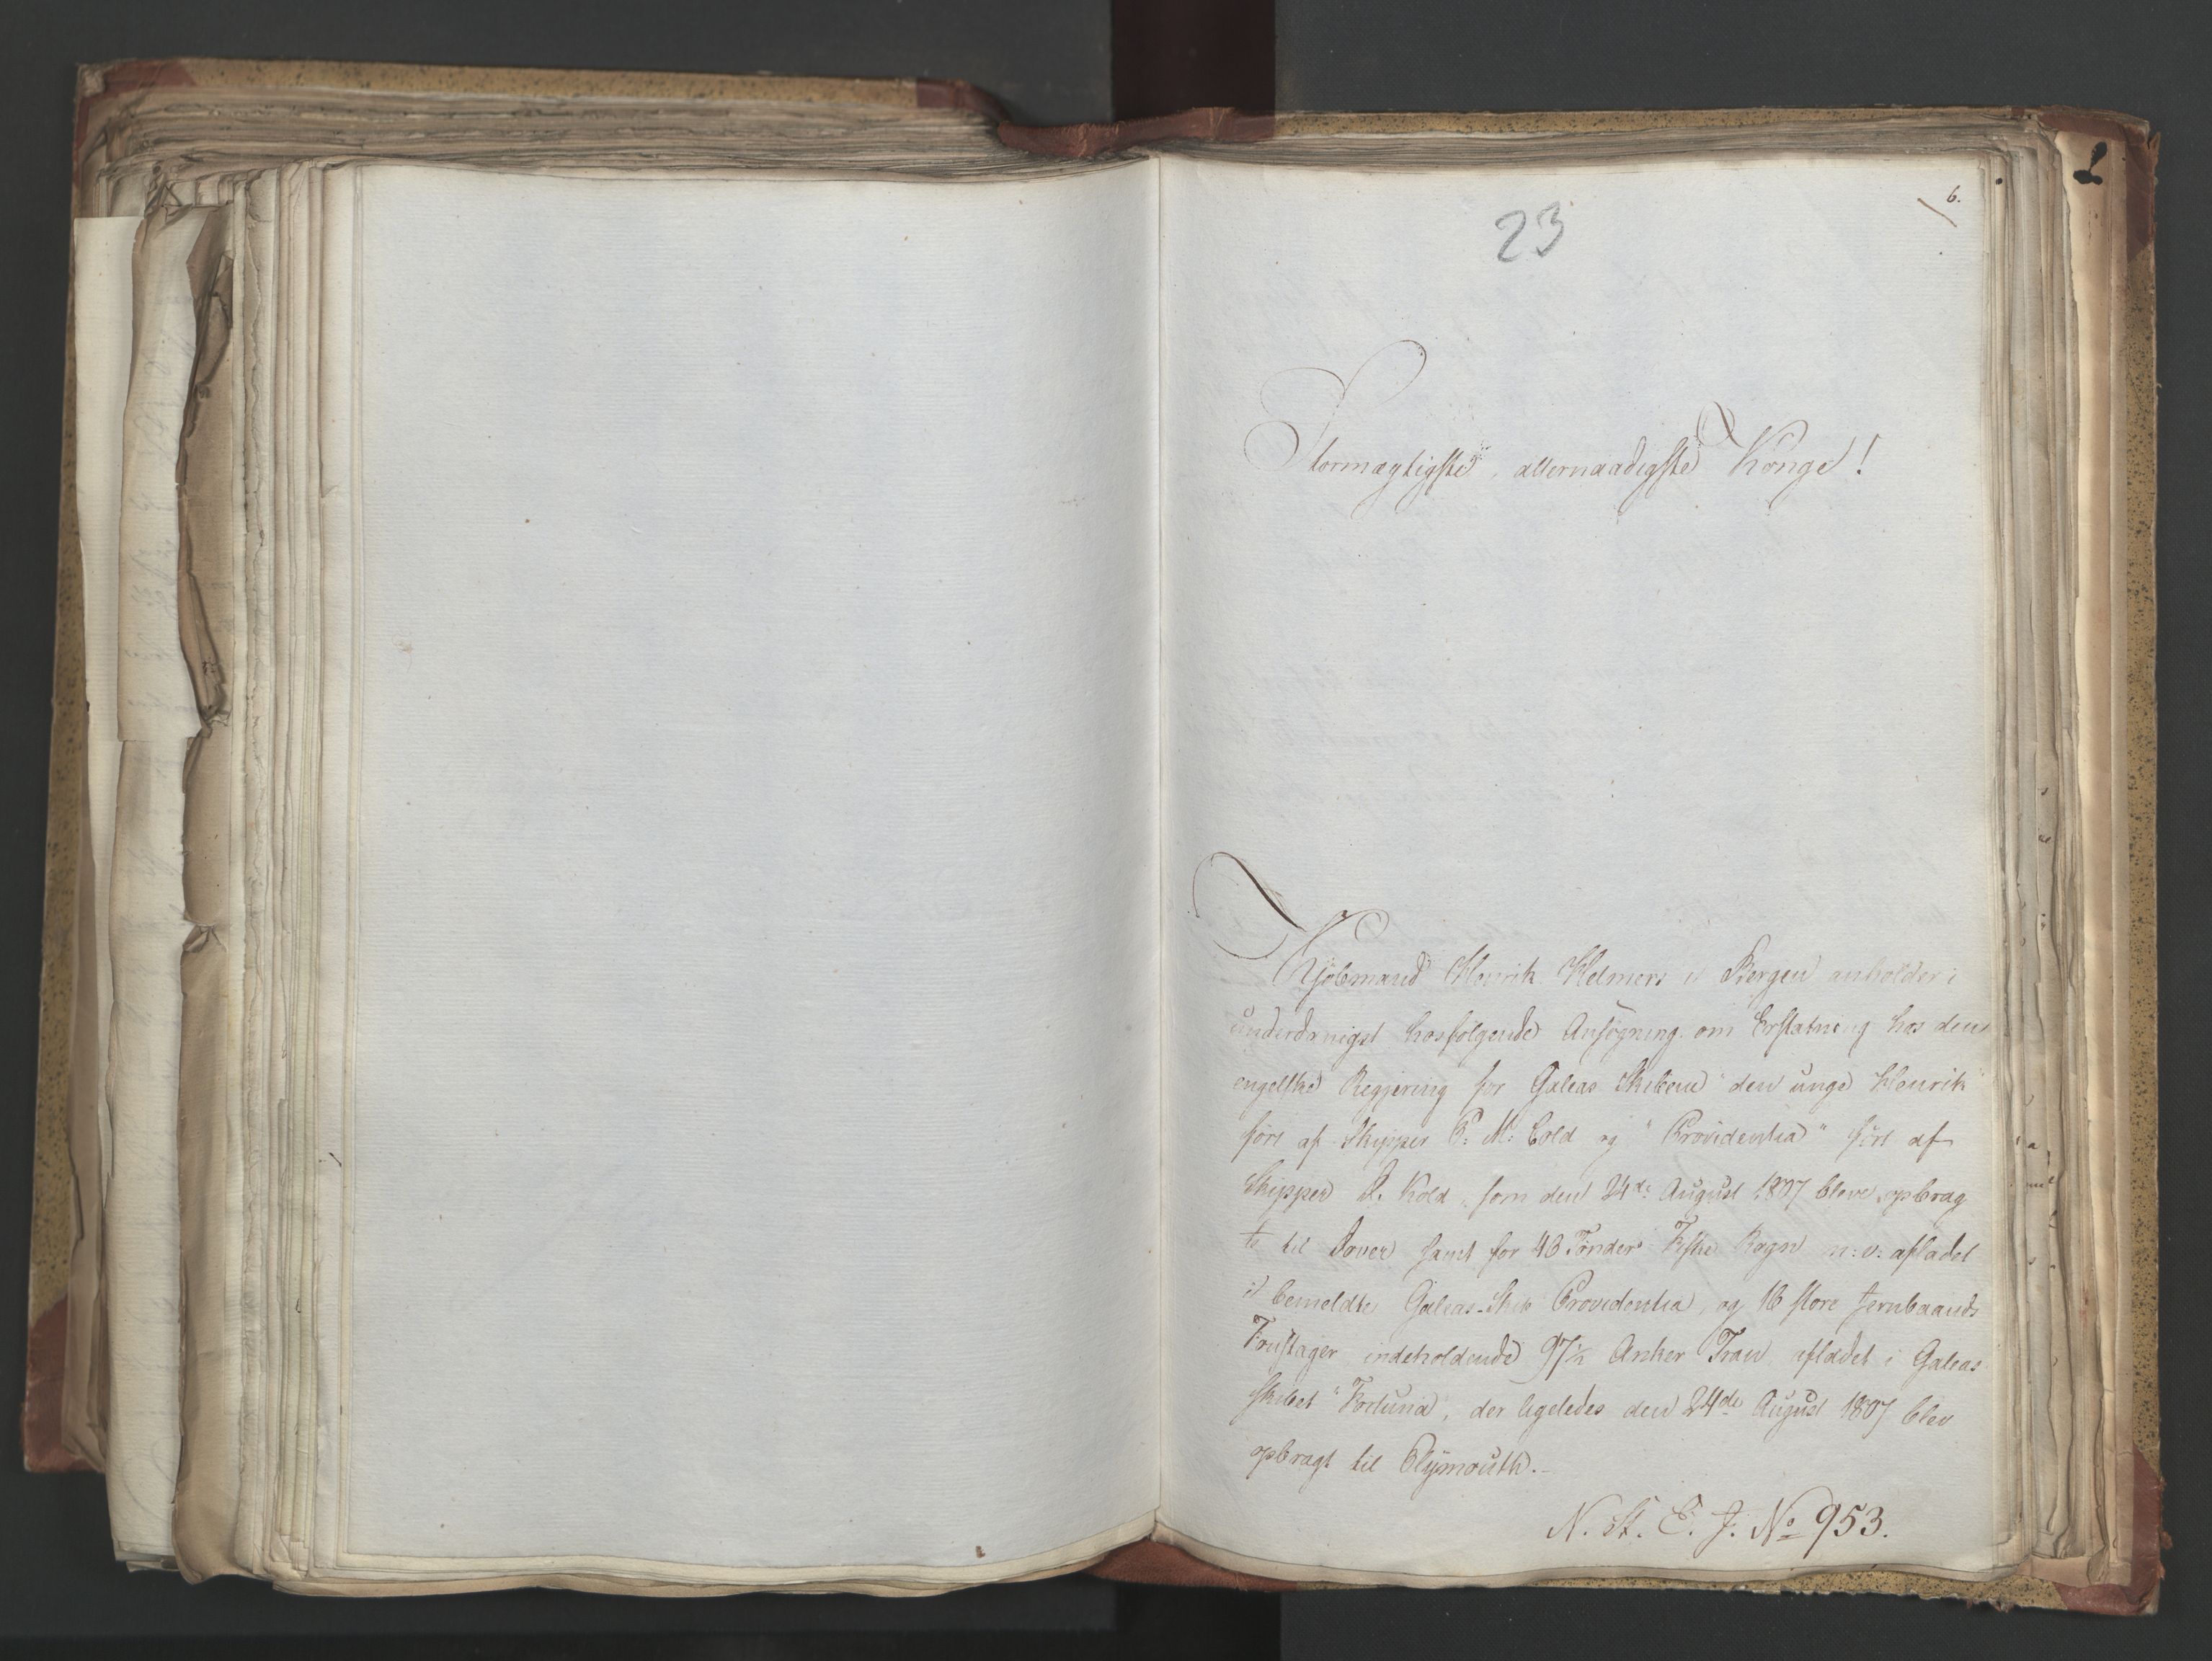 6.
23
Stormægtigste, allernaadigste Konge!
Kjøbmand Henrik Helmers i Bergen anholder i
underdanigst hosfølgende Ansøgning om Erstatning hos den
engelske Regjering for Galeas Skibene "den unge Henrik"
ført af Skipper P. M. Cold og "Providentia" ført af
Skipper J. Kold, som den 24de August 1807 bleve opbrag
te til Dover samt for 46 Tønder Fiske Rogn m: v: afladet
i bemeldte Galeas-Skib Providentia, og 16 store Jernbaands
Trustager indeholdende 97½ Anker Tran afladet i Galeas
skibet "Fortuna, der ligeledes den 24de August 1807 blev
opbragt til Plymouth.-
N. St. E. J. No 953.